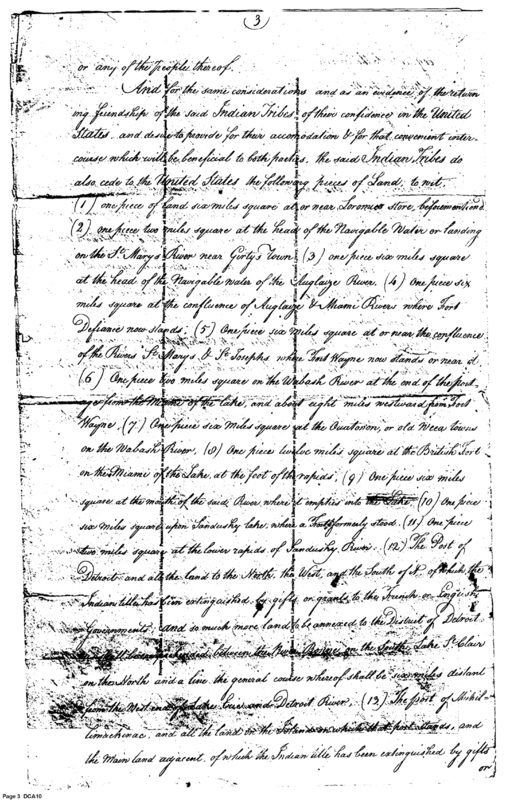 (3)
or any of the People thereof.
And for the same considerations and as an evidence of the return
ing friendship of the said Indian Tribes of their confidence in the United
States, and desire to provide for their accomodation & for that convenient inter-
course which will be beneficial to both parties, the said Indian Tribes do
also cede to the United States the following pieces of Land, to wit.
(1) one piece of land six miles square at or near Loromies store, beforementioned
(2) one piece two miles square at the head of the Navigable Water or landing
on the St Marys River near Girty's Town. (3) one piece six miles square
at the head of the Navigable water of the Auglaize River. (4) One piece six
miles square at the confluence of Auglaize & Miami Rivers where Fort
Defiance now stands. (5) One piece six Miles square at or near the confluence
of the Rivers St Marys & St Josephs where Fort Wayne now stands or near it.
(6) One piece two miles square on the Wabash River at the end of the port-
age from the Miami of the Lake, and about eight miles westward from Fort
Wayne. (7) One piece six Miles square at the Ouatanon, or old Weea towns
on the Wabash River. (8) One piece twelve miles square at the British Fort
on the Miami of the Lake, at the foot of the rapids. (9) One piece six miles
square at the mouth of the said River where it empties into the Lake. (10) One piece
six miles square upon Sandusky lake, where a Fort formerly stood. (11) One piece
two miles square at the lower rapids of Sandusky River. (12) The Post of
Detroit and all the land to the North, the West, and the South of it, of which the
Indian title has been extinguished by gifts or grants to the French or English
Governments and so much more land to be annexed to the District of Detroit
as shall be comprehended between the River Rosine on the South, Lake St Clair
on the North and a line the general course whereof shall be six miles distant
from the West end of Lake Erie and Detroit River. (13) The post of Mikil-
limackinac, and all the land on the Island on which that post stands, and
the Main land adjacent, of which the Indian title has been extinguished by gifts
or
Page 3 DCA10